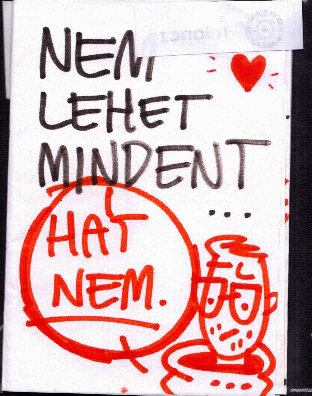 NEM
LEHET
MINDENT
...
HÁT
NEM.